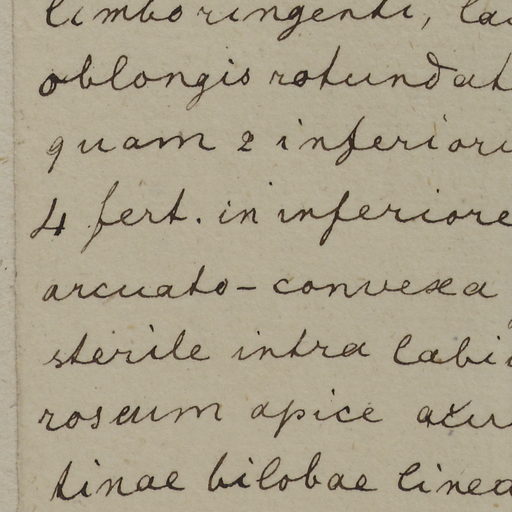 limbo ringenti, la
oblongis rotundat
quam 2 inferioru
4 fert. in inferiore
arcuato-convexa
sterile intra labi
roseum apice acu
tinae bilobae linea